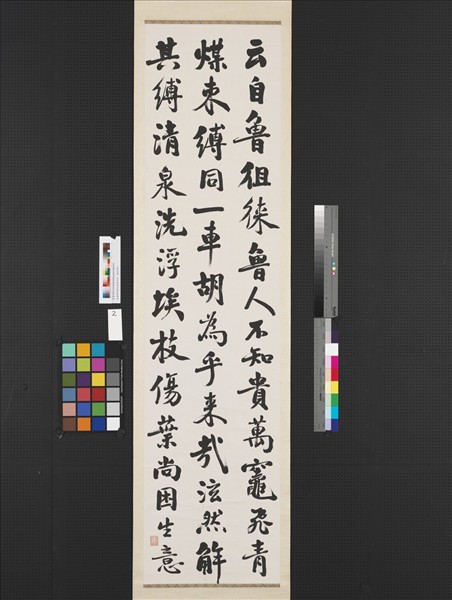 云自魯徂徠魯人不知貴萬竈飛青
煤束縛同一車胡為乎来哉泫然解
其縛清泉洗浮埃枝傷葉尚困生意
2